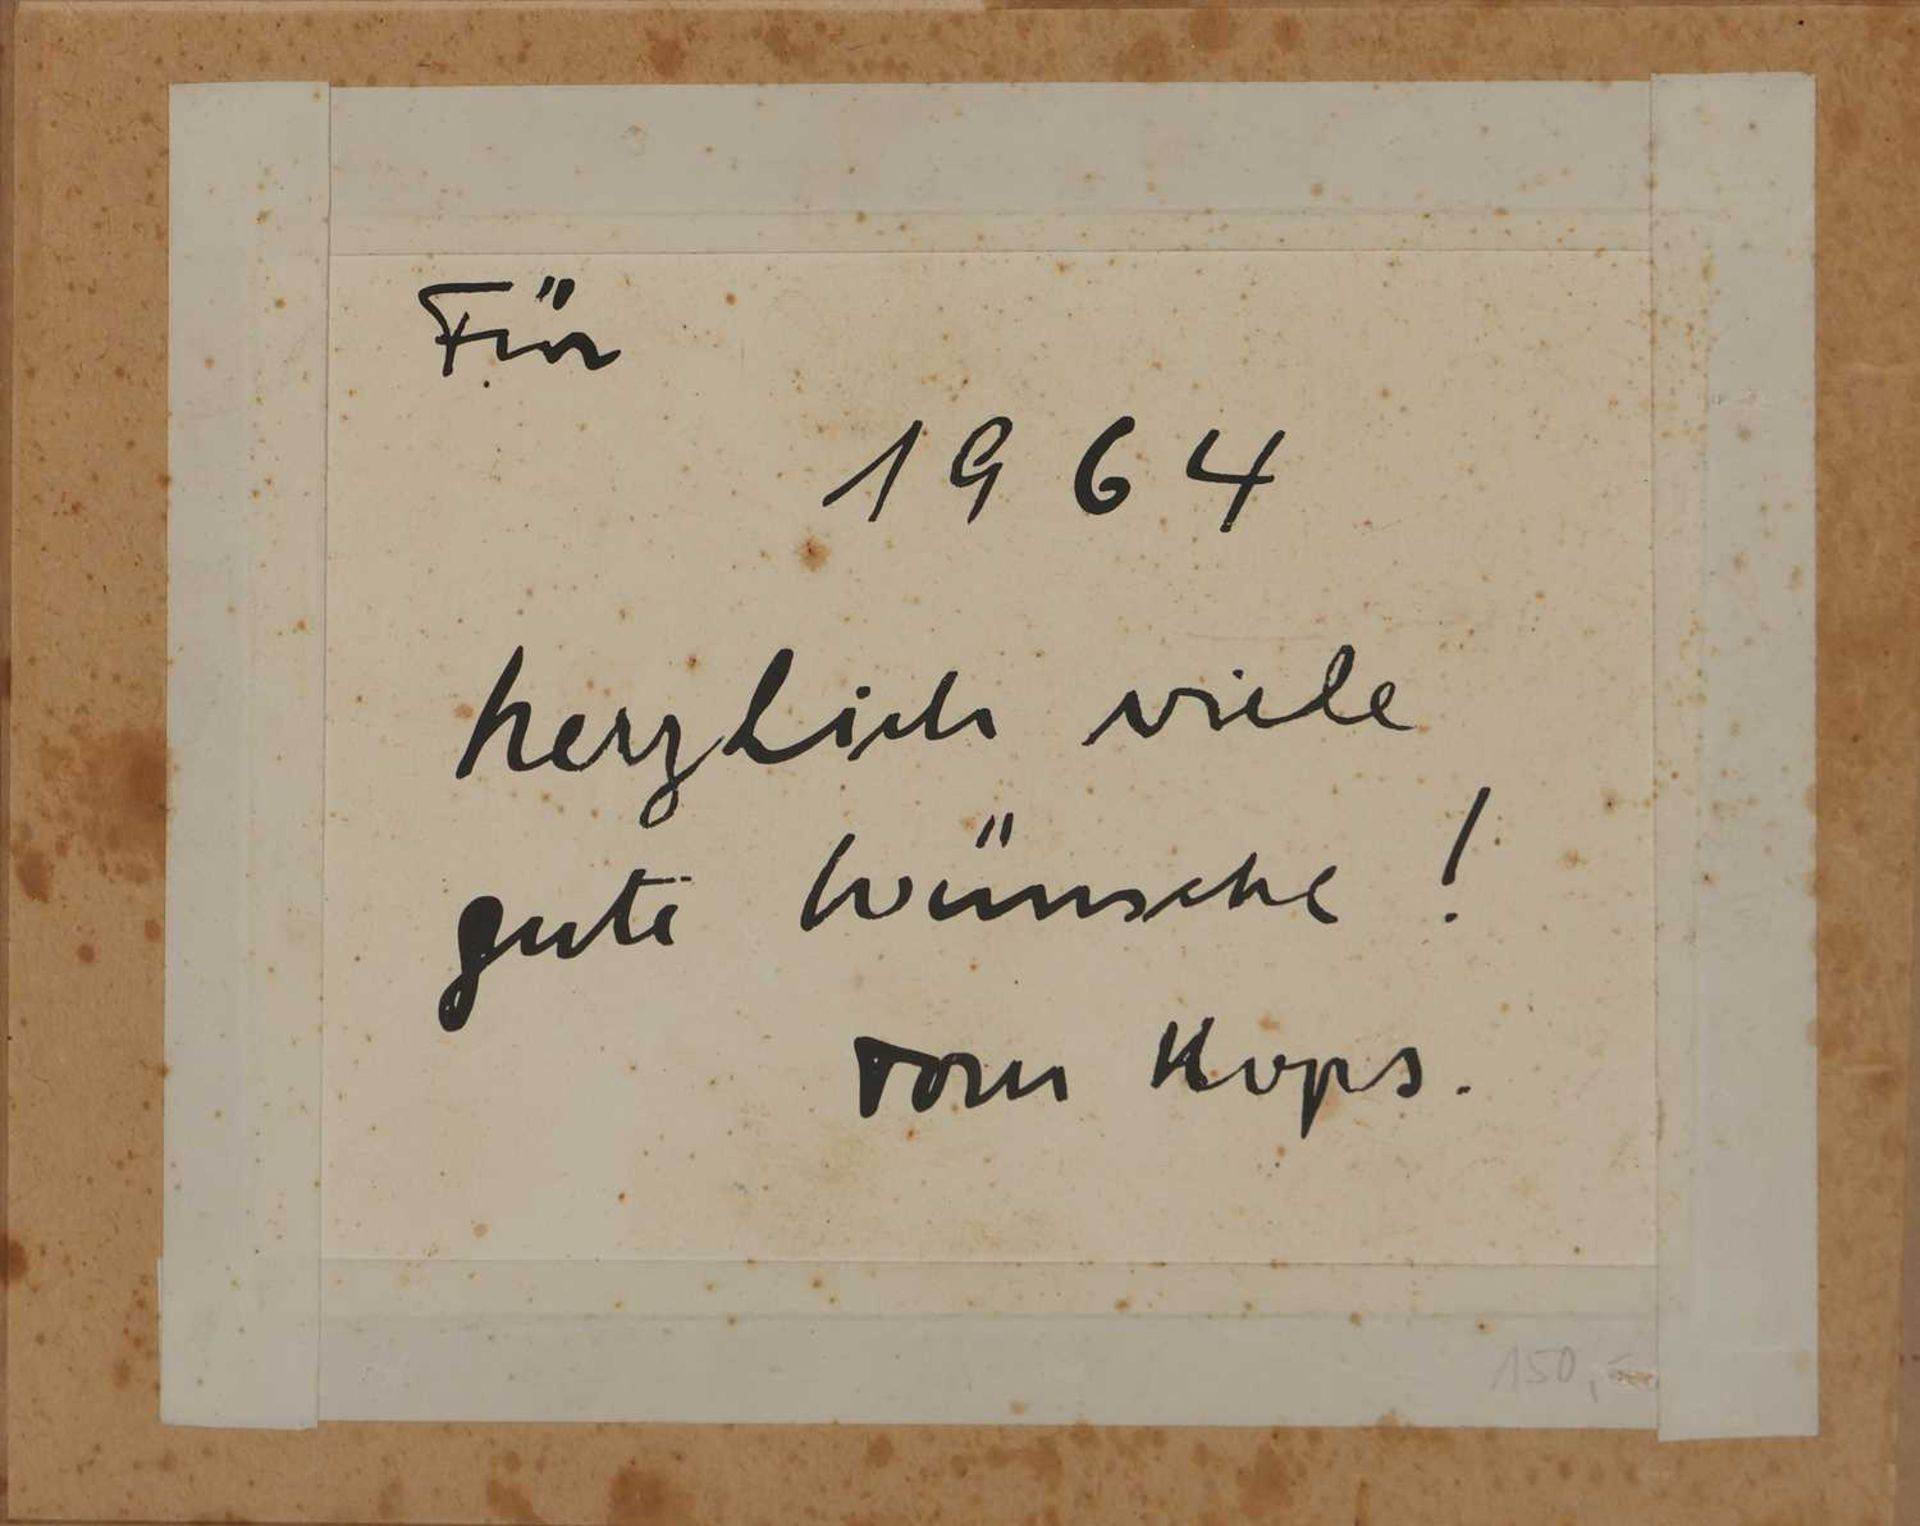 Für
1964
herzlich viele
gute Wünsche!
vom Hops.
150,-